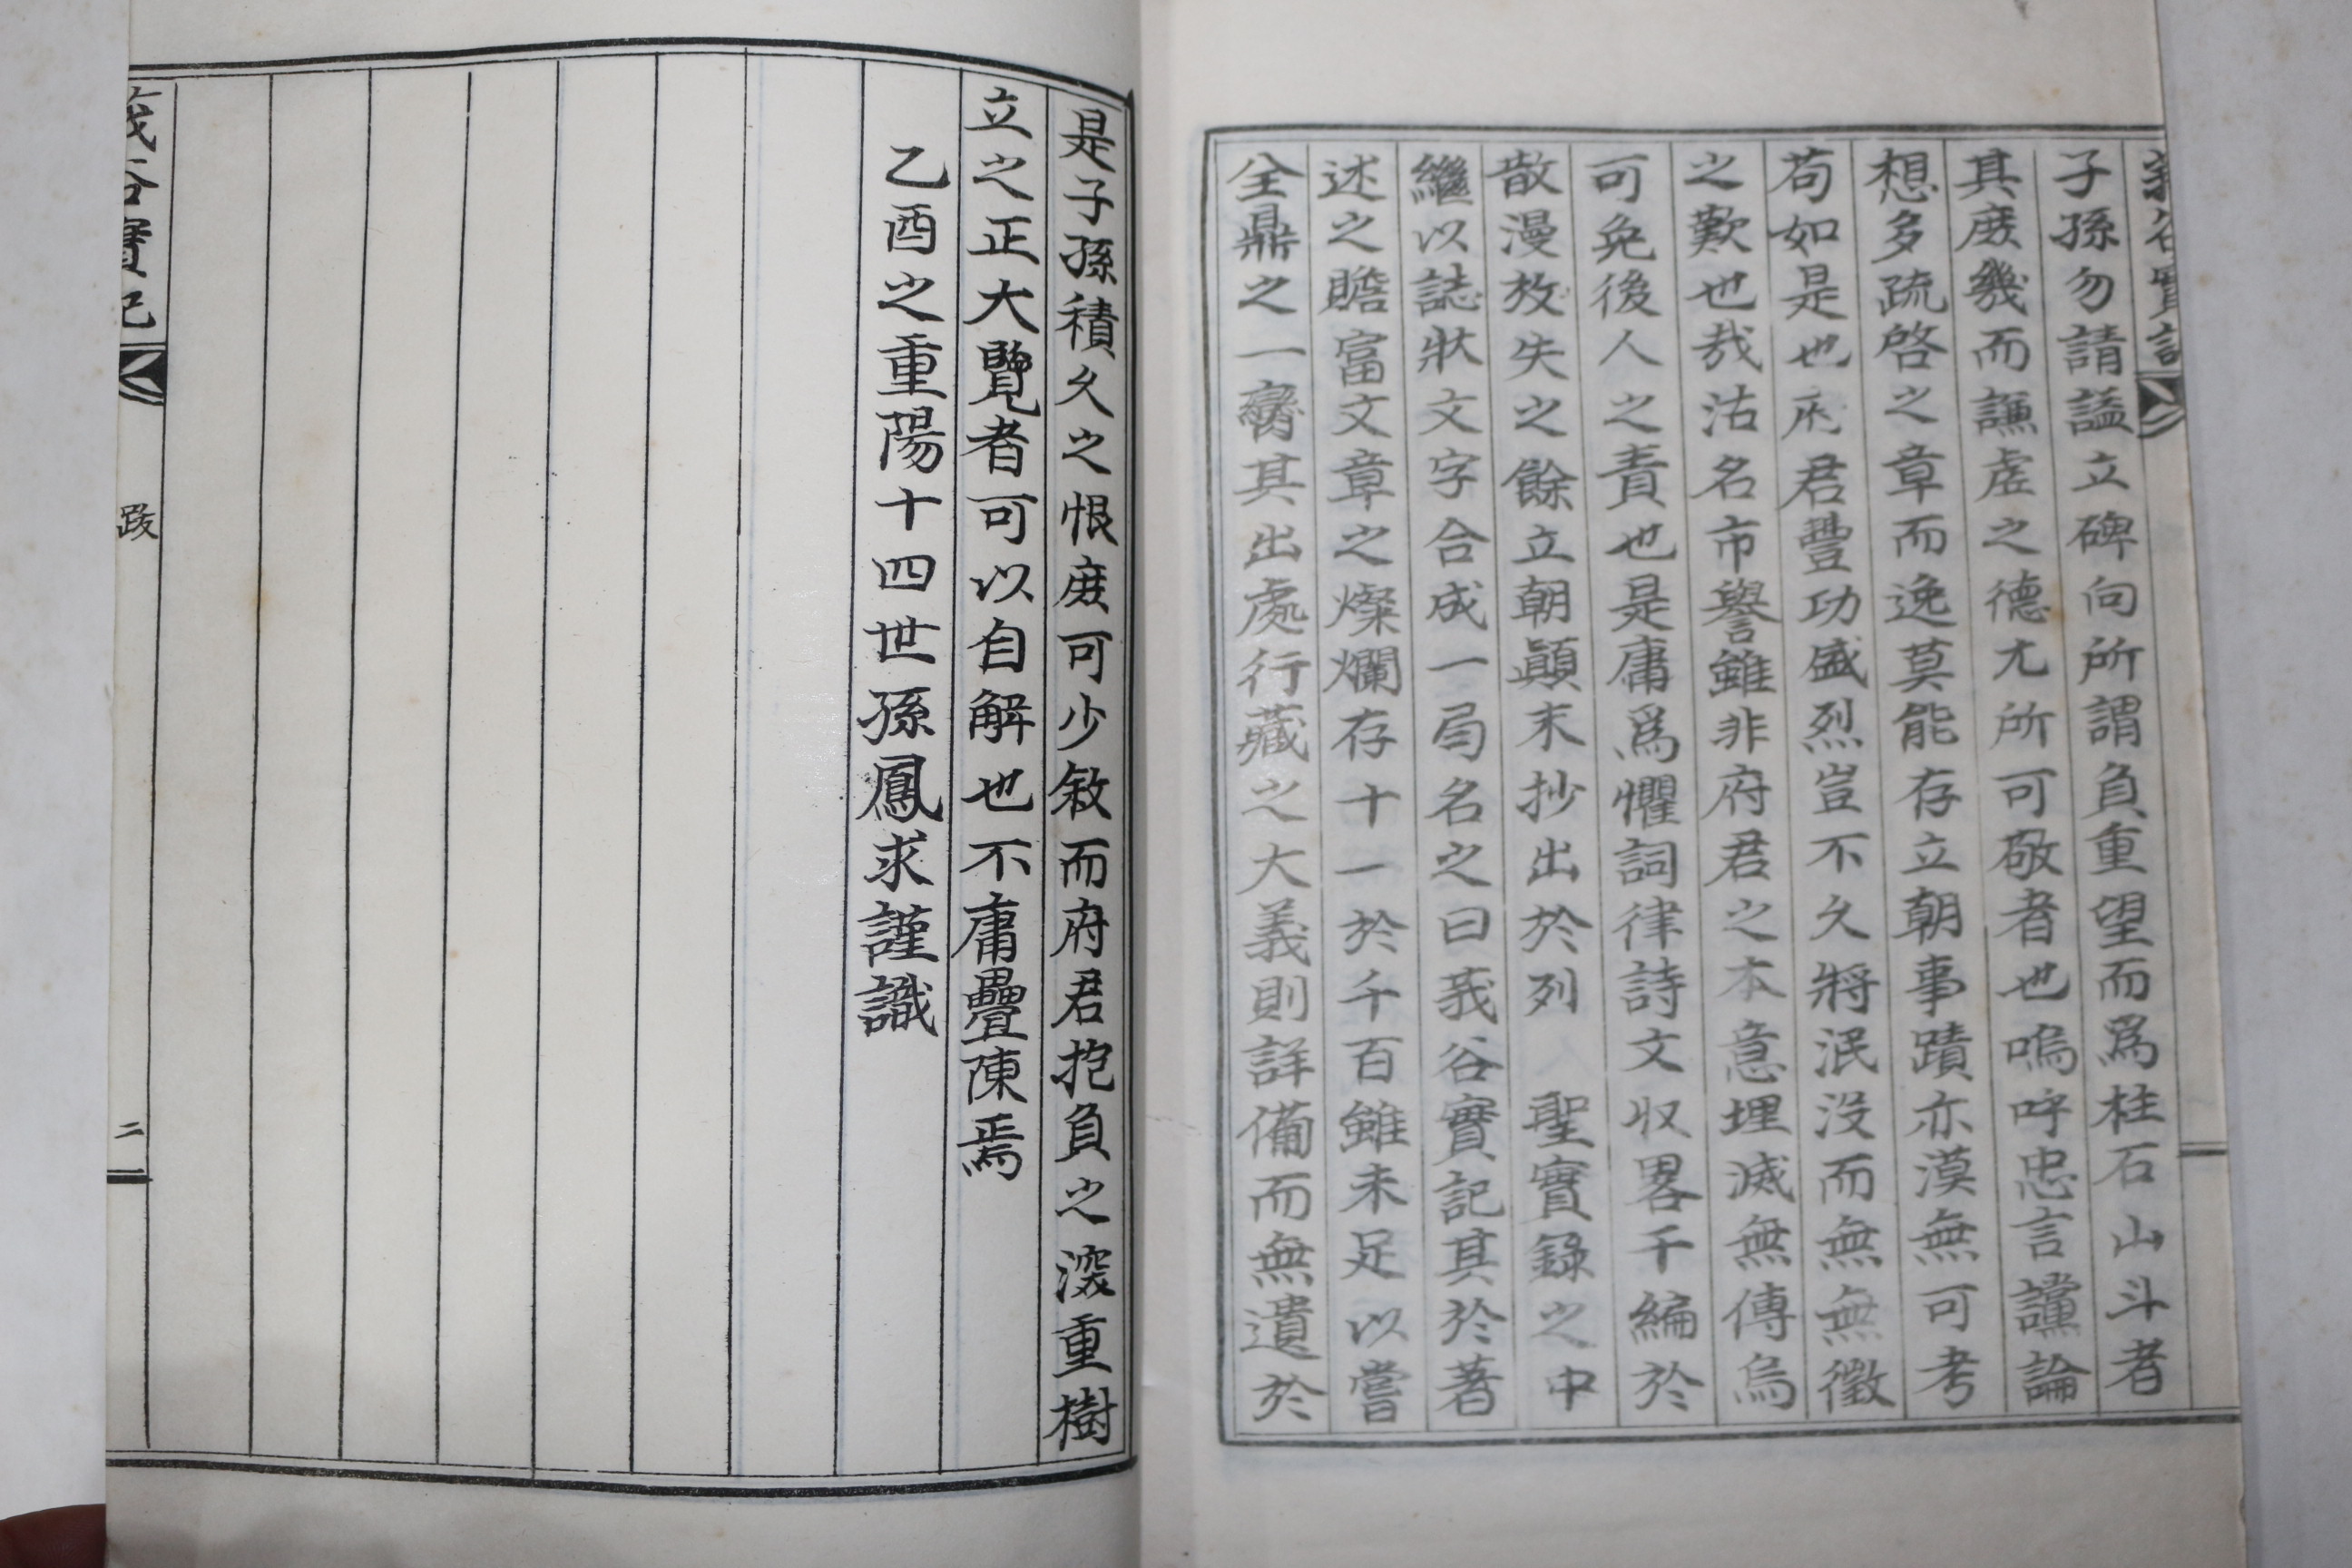 莪谷實記
子孫勿請諡立碑向所謂負重望而爲柱石山斗者
其庶幾而謙虛之德尤所可敬者也嗚呼忠言讜論
想多疏啓之章而逸莫能存立朝事蹟亦漠無可考
苟如是也府君豐功盛烈豈不久將泯沒而無無徵
之歎也哉沽名市譽雖非府君之本意埋滅無傳烏
可免後人之責也是庸爲懼詞律詩文収畧千編於
散漫放失之餘立朝顚末抄出於列 聖實錄之中
繼以誌狀文字合成一局名之曰莪谷實記其於著
述之贍富文章之燦爛存十一於千百雖未足以嘗
全鼎之一臠其出處行藏之大義則詳備而無遺於
是子孫積久之恨庶可少敘而府君抱負之深重樹
立之正大覽者可以自解也不庸疊陳焉
乙酉之重陽十四世孫鳳求謹識
莪谷實記
跋
二